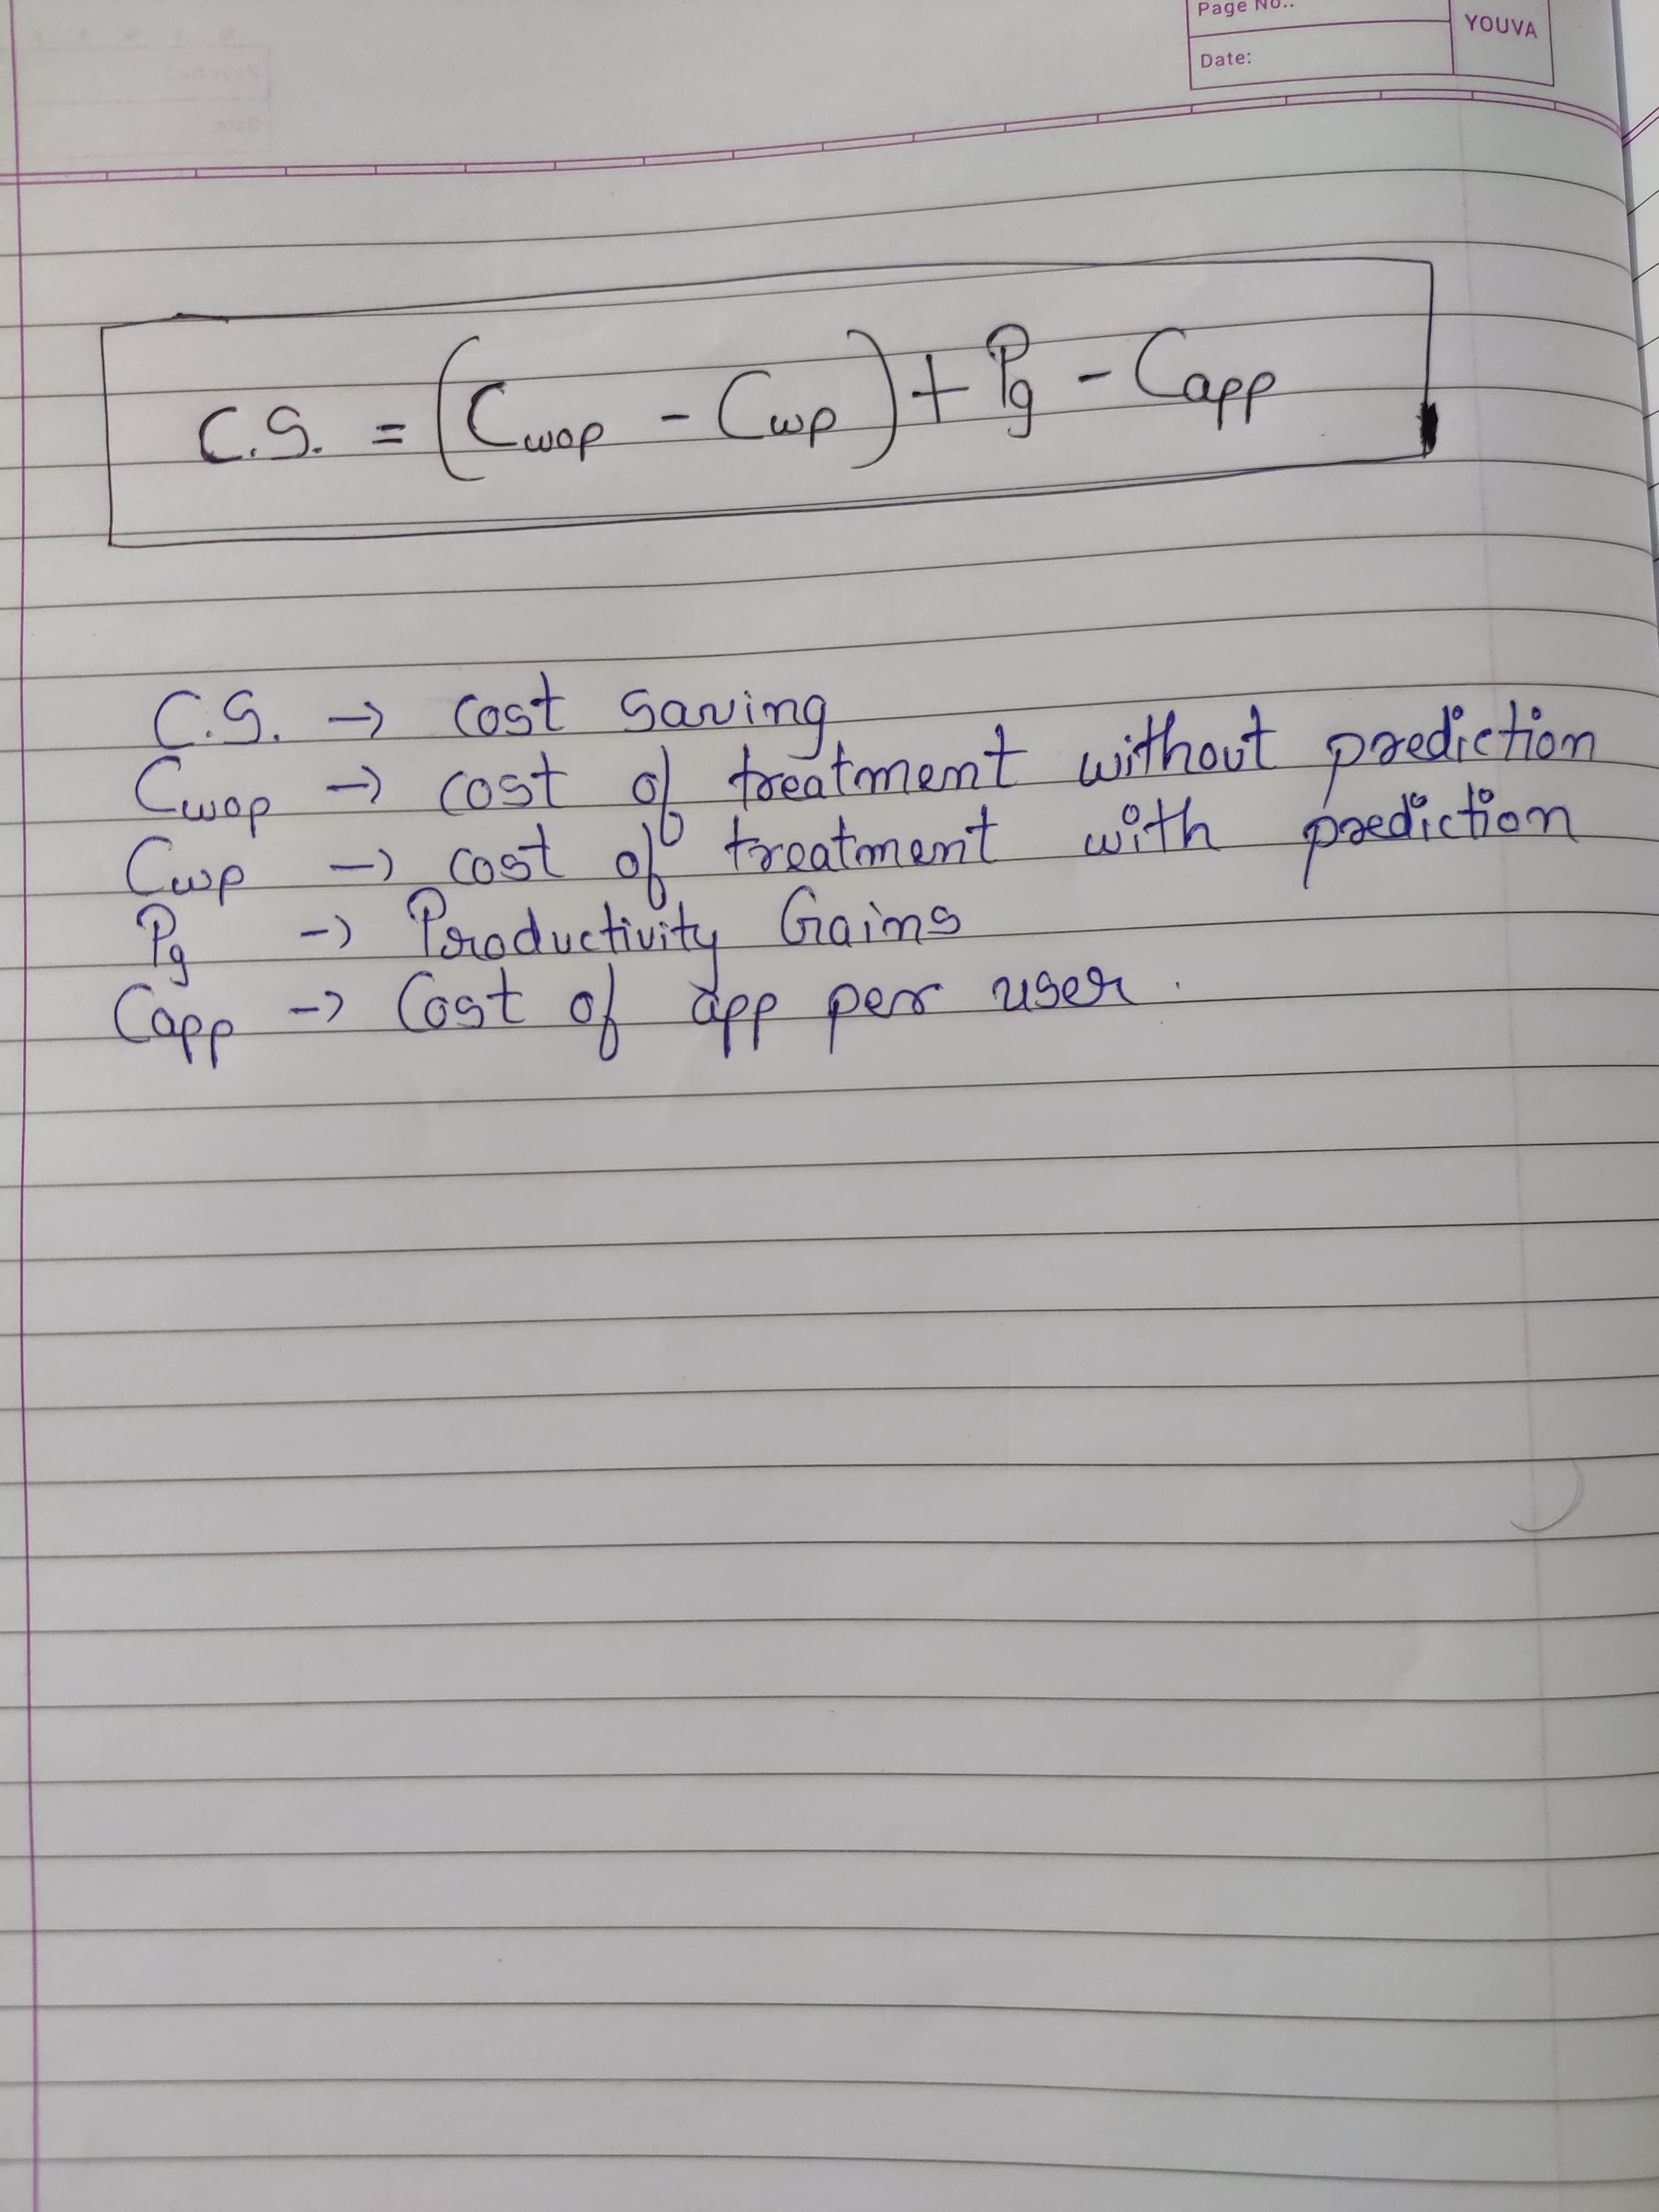 Page No..
YOUVA
Date:
C.S. = (Cwop - Cwp) + Pg - Capp
C.S. → cost saving
Cwop → cost of treatment without prediction
Cwp → cost of treatment with prediction
Pg → Productivity Gains
Capp → Cost of app per user.